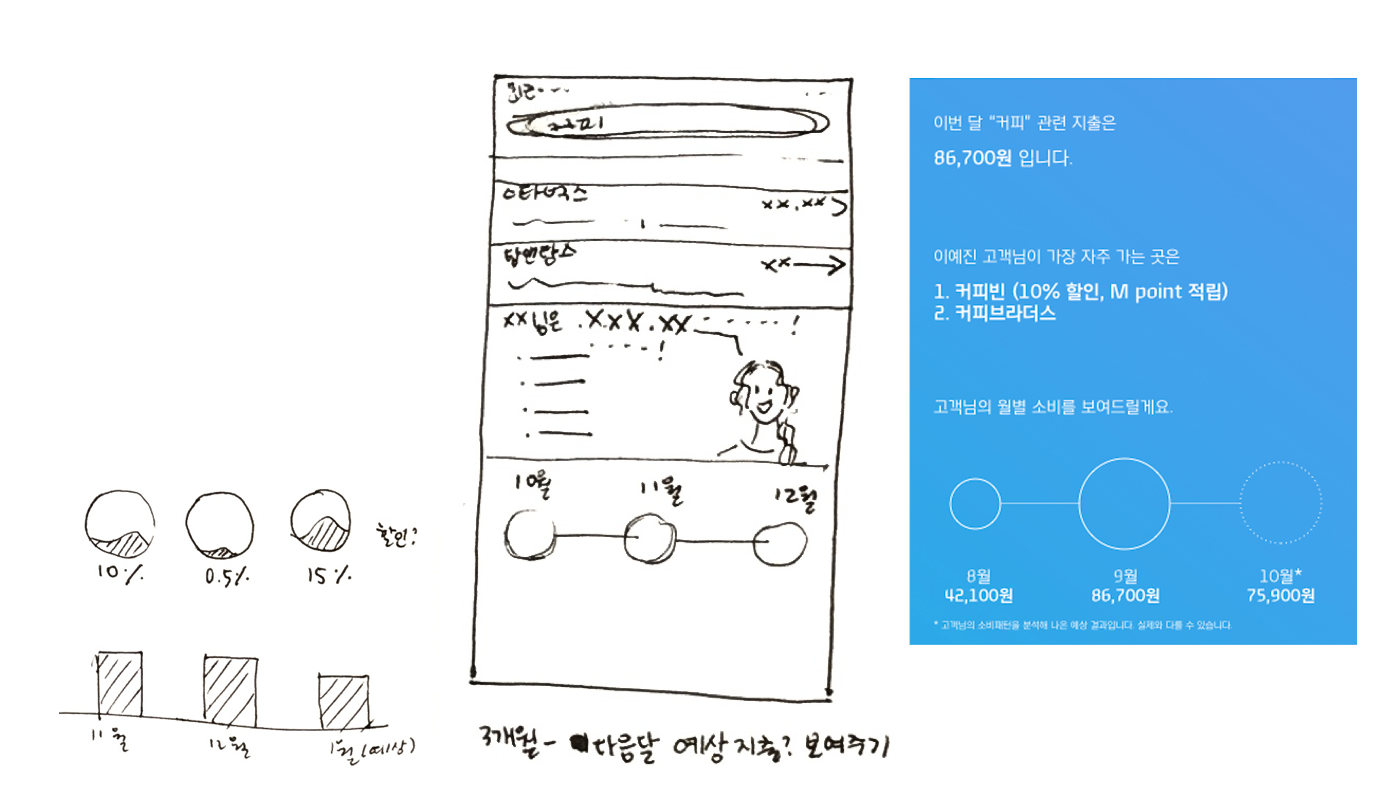 10%
0.5%
15%
할인?
11월
12월
1월(예상)
커피
스타벅스
xx.xx
탐앤탐스
xx
xx님은 .XxX.xx ------!
----!
10월
11월
12월
3개월- 다음달 예상지출? 보여주기
이번 달 “커피” 관련 지출은
86,700원 입니다.
이예진 고객님이 가장 자주 가는 곳은
1. 커피빈 (10% 할인, M point 적립)
2. 커피브라더스
고객님의 월별 소비를 보여드릴게요.
8월
42,100원
9월
86,700원
10월*
75,900원
* 고객님의 소비패턴을 분석해 나온 예상 결과입니다. 실제와 다를 수 있습니다.